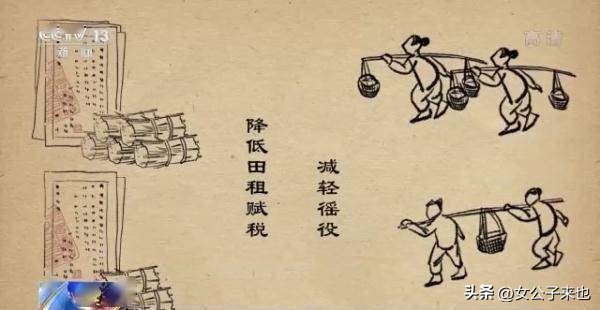 CCTV 13
新闻
高清
减轻徭役
降低田租赋税
头条 @女公子来也